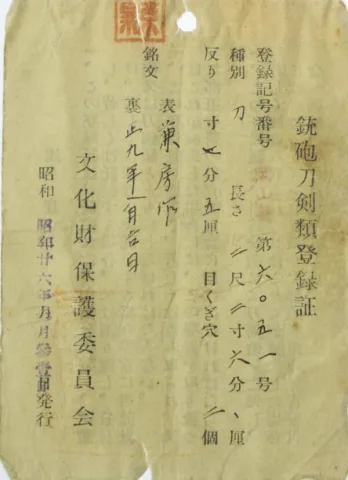 銃砲刀剣類登録証
登録記号番号 第六〇五一号
種別 刀 長さ 二尺二寸六分、厘
反り 寸七分五厘 目くぎ穴 二個
銘文 表 兼房作
裏 正九年二月吉日
文化財保護委員会
昭和 昭和廿六年 月 日発行